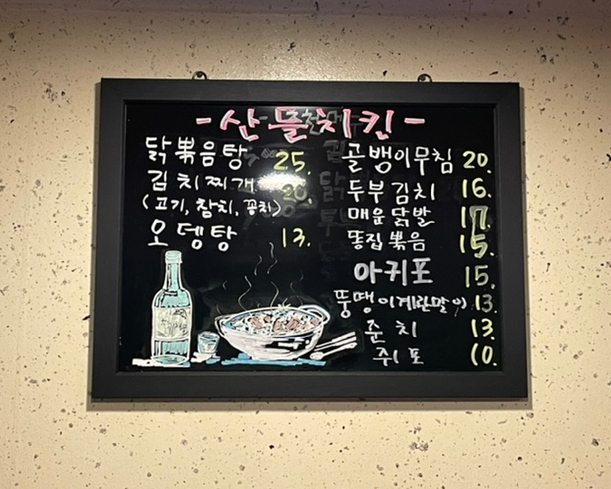 -산들치킨-
닭볶음탕 25.
김치찌개 20.
(고기,참치,꽁치)
오뎅탕 13.
골뱅이무침 20.
두부김치 16.
매운닭발 17.
똥집볶음 15.
아귀포 15.
뚱땡이계란말이 13.
쥐포 10.